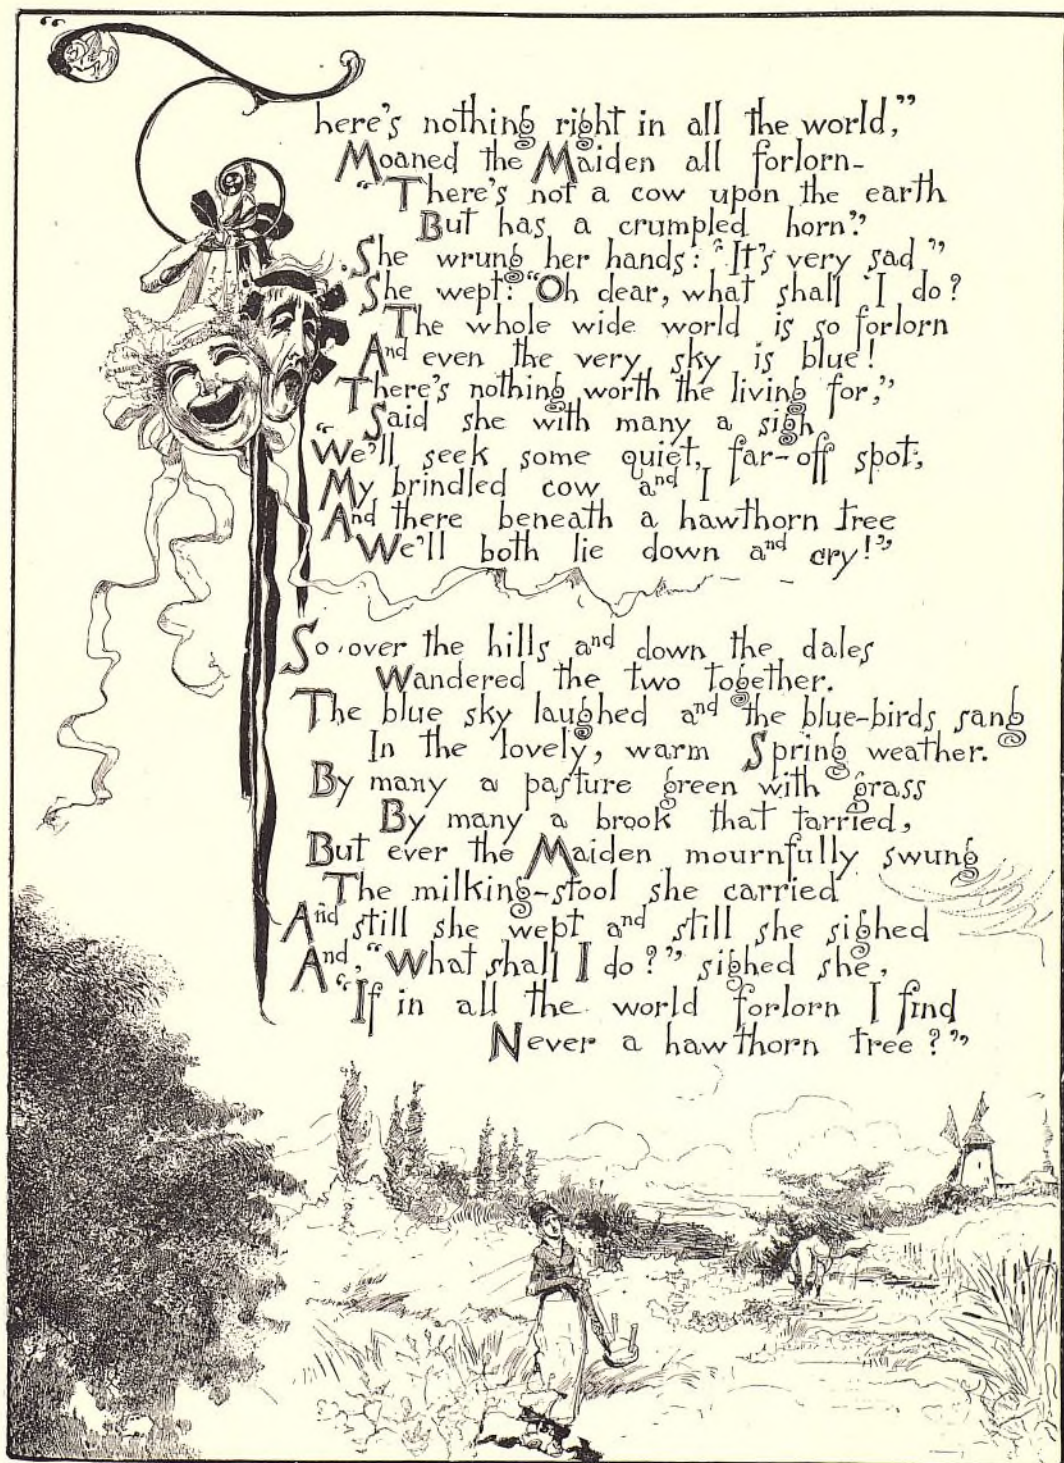 “There's nothing right in all the world,”
Moaned the Maiden all forlorn—
“There's not a cow upon the earth
But has a crumpled horn.”
She wrung her hands: “It's very sad”
She wept: “Oh dear, what shall I do?
The whole wide world is so forlorn
And even the very sky is blue!
There's nothing worth the living for,”
Said she with many a sigh
“We'll seek some quiet, far-off spot,
My brindled cow and I
And there beneath a hawthorn tree
We'll both lie down and cry!”
So over the hills and down the dales
Wandered the two together.
The blue sky laughed and the blue-birds sang
In the lovely, warm Spring weather.
By many a pasture green with grass
By many a brook that tarried,
But ever the Maiden mournfully swung
The milking-stool she carried
And still she wept and still she sighed
And, “What shall I do?” sighed she,
“If in all the world forlorn I find
Never a hawthorn tree?”